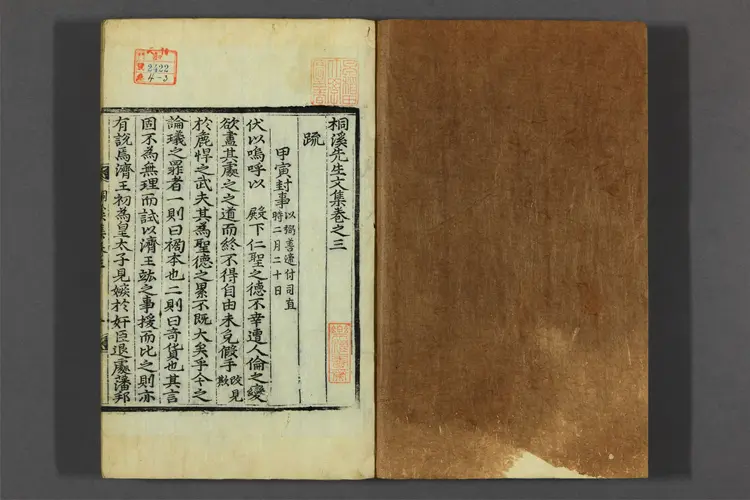 桐溪先生文集卷之三
疏
甲寅封事 以弼善遞付司直
時二月二十日
伏以嗚呼以 殿下仁聖之德不幸遭人倫之變
欲盡其處之之道而終不得自由未免假手 改見
欺
於麁悍之武夫其為聖德之累不既大矣乎今之
論㼁之罪者一則曰禍本也二則曰奇貨也其言
固不為無理而試以濟王竑之事援而比之則亦
有說焉濟王初為皇太子見嫉於奸臣退處藩邦
2422
4-3